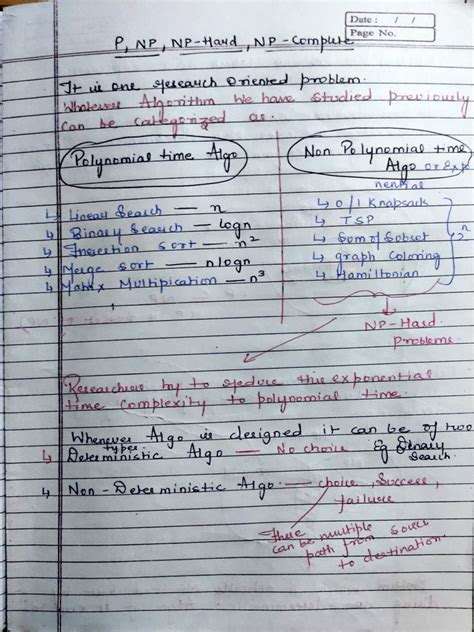 Date : / /
Page No.
P, NP, NP-Hard, NP-Complete
It is one research oriented problem.
Whatever Algorithm We have studied previously
can be categorized as.
Polynomial time Algo
Non Polynomial time
Algo or Exp
nential
↳ Linear Search — n
↳ Binary Search — logn
↳ Insertion sort — n²
↳ Merge sort — nlogn
↳ Matrix Multipication — n³
↳ 0/1 Knapsack
↳ TSP
↳ Sum of Subset
↳ graph Coloring
↳ Hamiltonian
2ⁿ
NP-Hard
Problems
Researchers try to reduce this exponential
time complexity to polynomial time.
Whenever Algo is designed it can be of two
types.
↳ Deterministic Algo — No choice Eg Binary
Search.
↳ Non-Deterministic Algo — choice, Success,
failure
There
can be multiple
path from source
to destination.